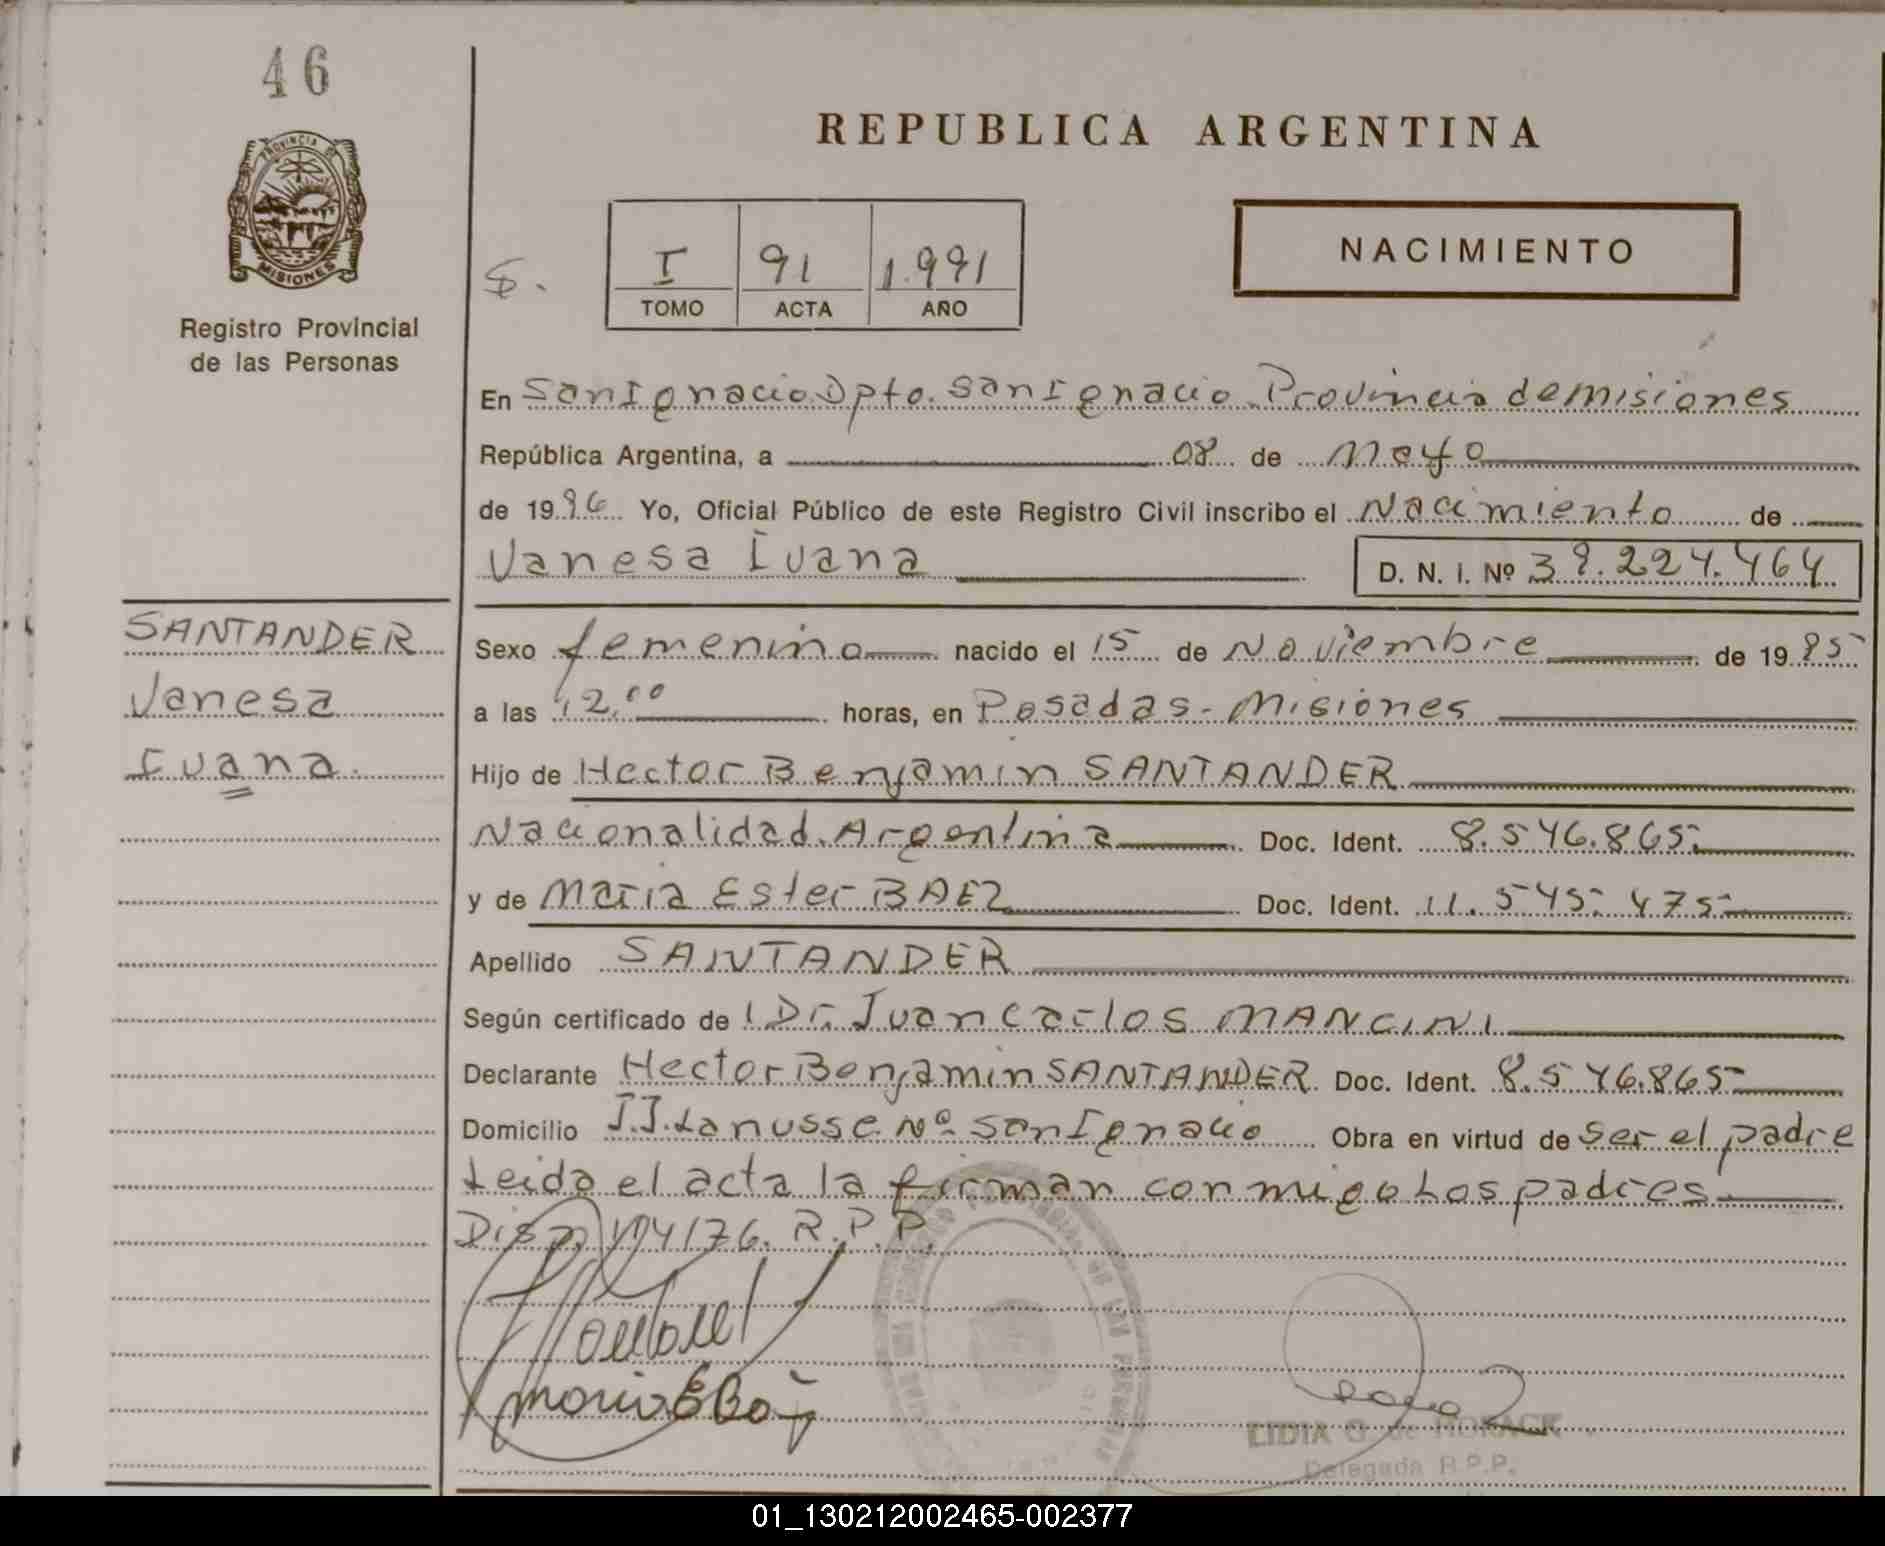 46
REPUBLICA ARGENTINA
PROVINCIA DE
MISIONES
Registro Provincial
de las Personas
I 91 1.991
TOMO ACTA AÑO
NACIMIENTO
En San Ignacio Dpto. San Ignacio Provincia de misiones
República Argentina, a 08 de Mayo
de 1996 Yo, Oficial Público de este Registro Civil inscribo el Nacimiento de
Vanesa Ivana D. N. I. Nº 39.224.464
SANTANDER
Vanesa
Ivana.
Sexo femenino nacido el 15 de Noviembre de 1985
a las 12,00 horas, en Posadas - Misiones
Hijo de Hector Benjamin SANTANDER
Nacionalidad Argentina Doc. Ident. 8.546.865
y de Maria Ester BAEZ Doc. Ident. 11.545.475
Apellido SANTANDER
Según certificado de Dr. Juan Carlos MANCINI
Declarante Hector Benjamin SANTANDER Doc. Ident. 8.546.865
Domicilio J.J. Lanusse Nº San Ignacio Obra en virtud de Ser el padre
Leida el acta la firman con migo Los padres
Disp. 104/76. R.P.P.
LIDIA G. de HORACK
Delegada R.P.P.
01_130212002465-002377